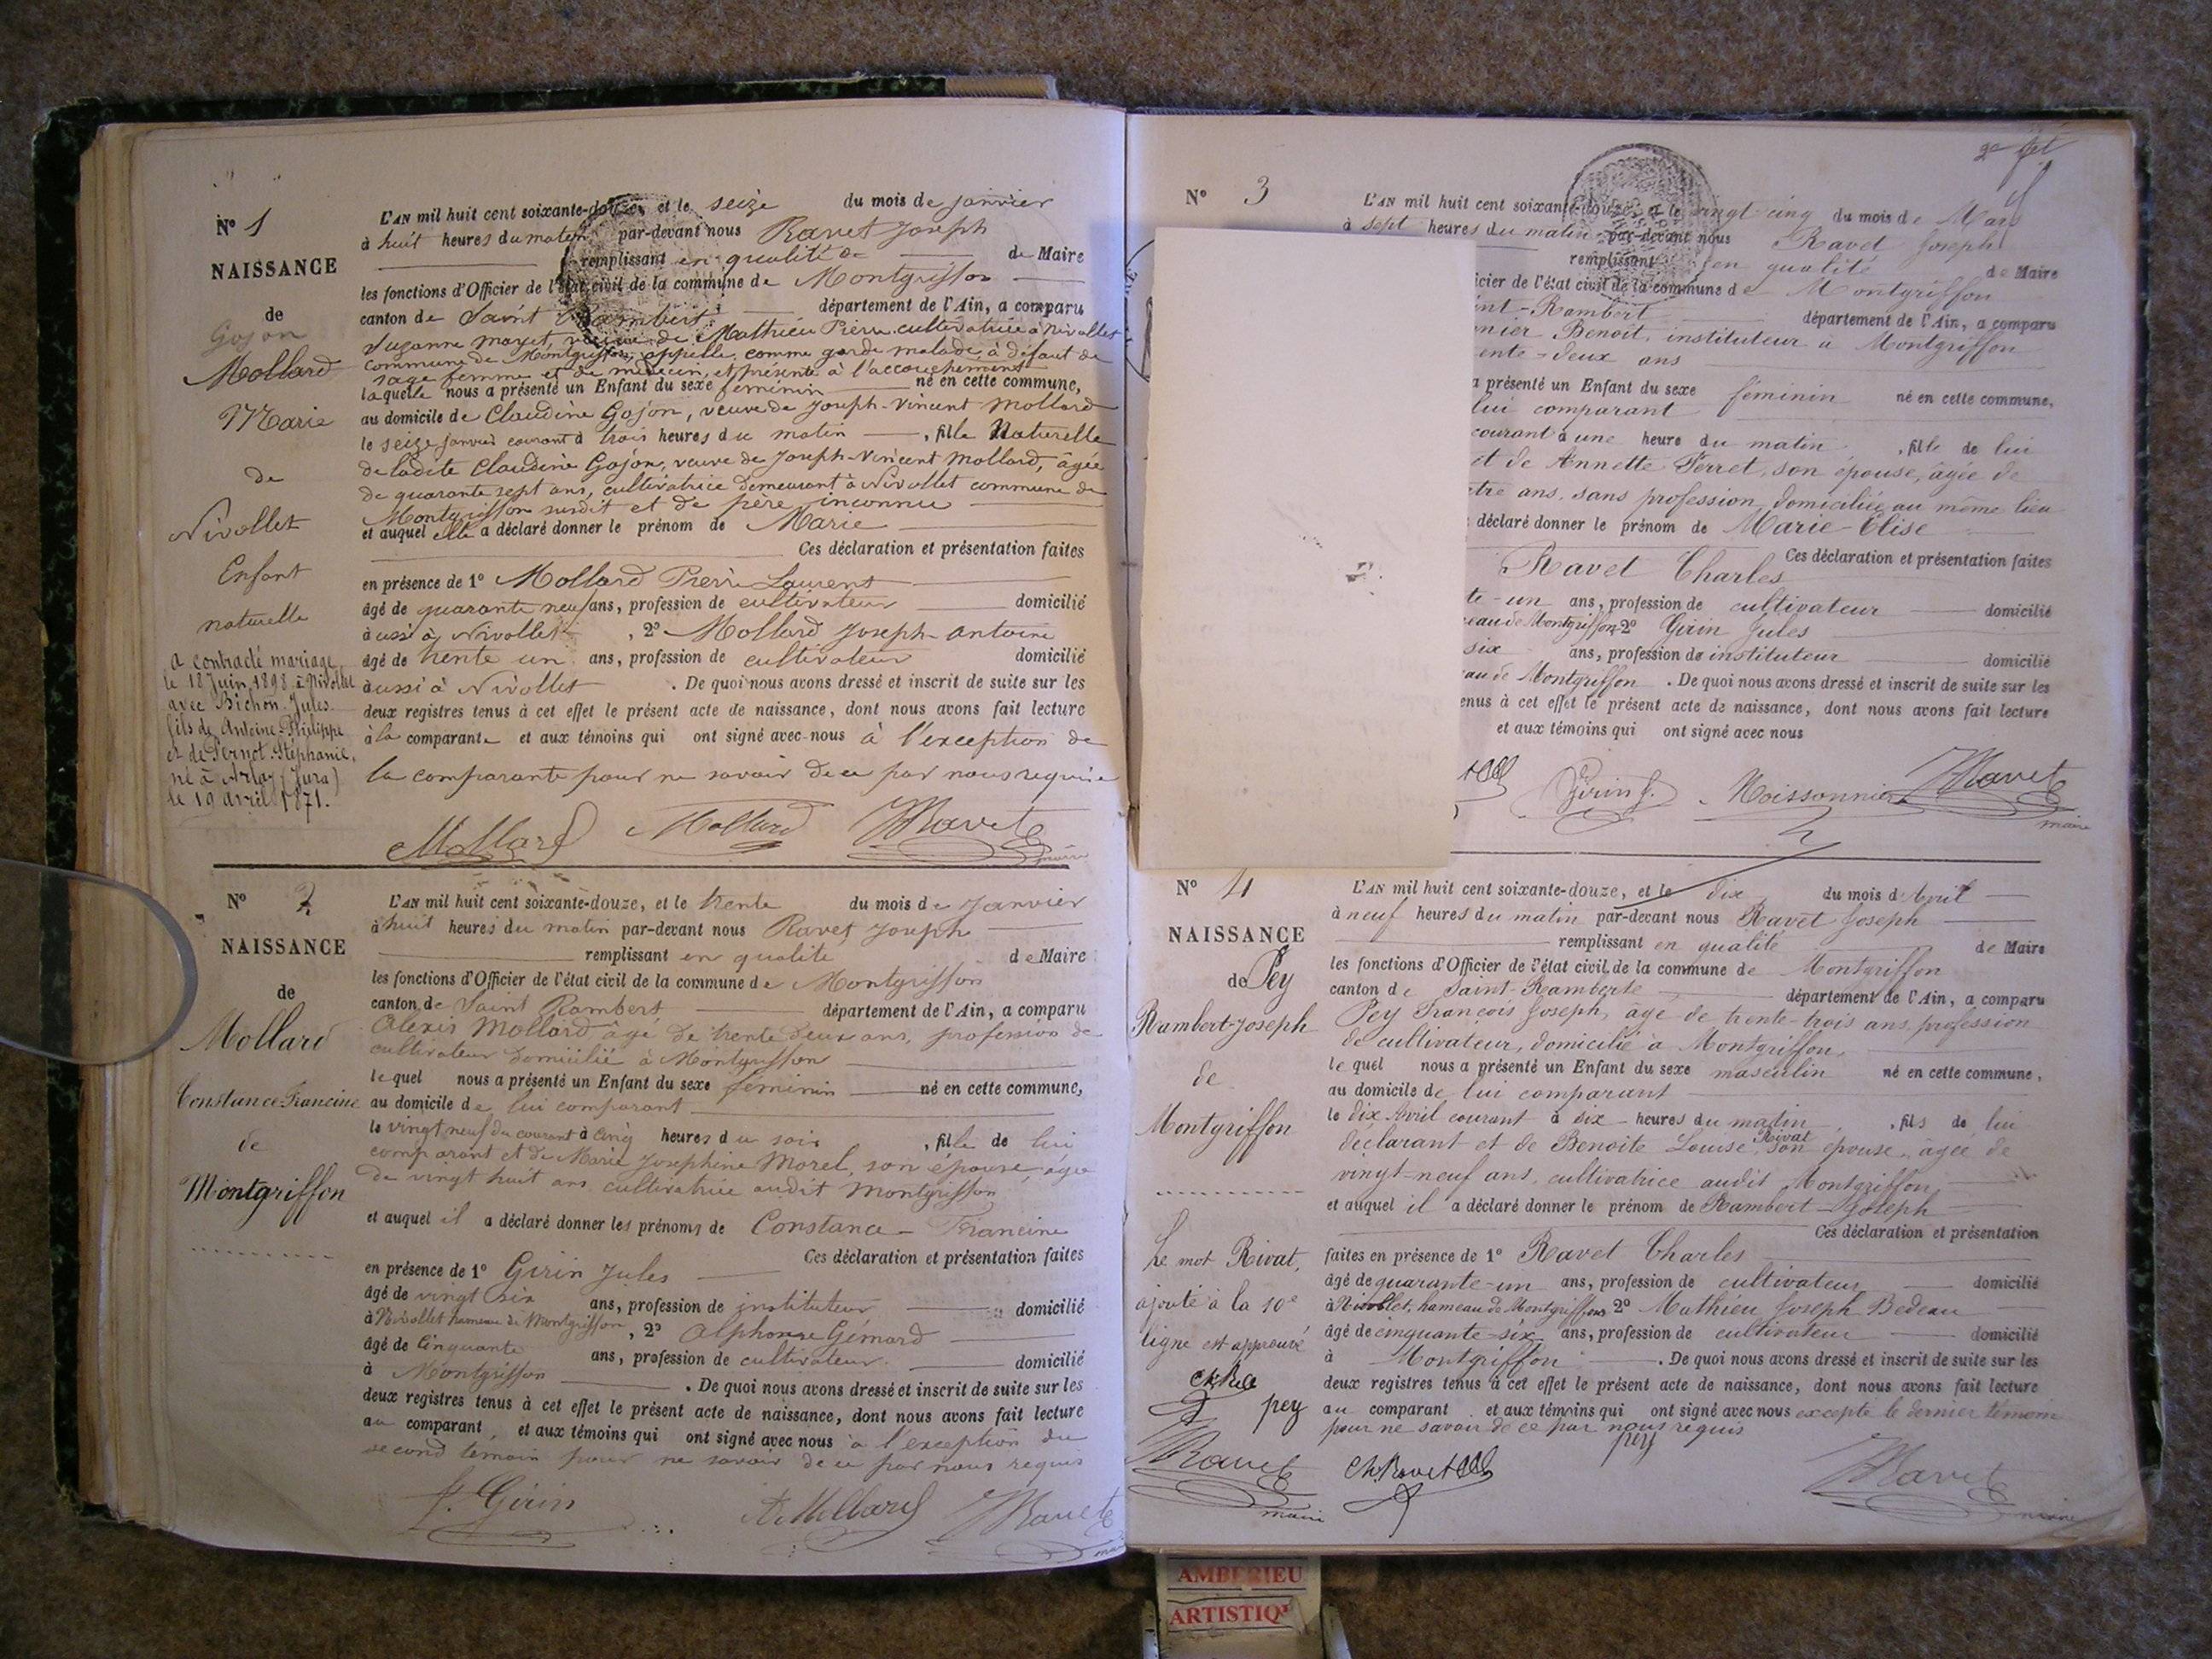 N° 1
NAISSANCE
de
Gojon
Mollard
Marie
de
Nivollet
Enfant
naturelle
a contracté mariage
le 18 Juin 1898 à Nivollet
avec Bichon Jules
fils de Antoine Philippe
et de Pernot Stéphanie,
né à Arlay (Jura)
le 19 avril 1871.
L'AN mil huit cent soixante-douze, et le seize du mois de janvier
à huit heures du matin par-devant nous Ravet Joseph
remplissant en qualité de de Maire
les fonctions d'Officier de l'état civil de la commune de Montgriffon
canton de Saint Rambert département de l'Ain, a comparu
Suzanne mayet, veuve de Mathieu Pierre cultivatrice à Nivollet
commune de Montgriffon, appelle comme garde malade, à défaut de
sage femme et de médecin, et présente à l'accouchement
laquelle nous a présenté un Enfant du sexe féminin né en cette commune,
au domicile de Claudine Gojon, veuve de Joseph-Vincent Mollard
le seize janvier courant à trois heures du matin , fille Naturelle
de ladite Claudine Gojon, veuve de Joseph-Vincent Mollard, âgée
de quarante sept ans, cultivatrice demeurant à Nivollet commune de
Montgriffon susdit et de père inconnu
et auquel elle a déclaré donner le prénom de Marie
Ces déclaration et présentation faites
en présence de 1° Mollard Pierre Laurent
âgé de quarante neuf ans, profession de cultivateur domicilié
à aussi à Nivollet , 2° Mollard Joseph Antoine
âgé de trente un ans, profession de cultivateur domicilié
à aussi à Nivollet . De quoi nous avons dressé et inscrit de suite sur les
deux registres tenus à cet effet le présent acte de naissance, dont nous avons fait lecture
à la comparante et aux témoins qui ont signé avec nous à l'exception de
la comparante pour ne savoir de ce par nous requise
Mollard Mollard JRavet
maire
N° 2
NAISSANCE
de
Mollard
Constance Francine
de
Montgriffon
L'AN mil huit cent soixante-douze, et le trente du mois de Janvier
à huit heures du matin par-devant nous Ravet Joseph
remplissant en qualité de Maire
les fonctions d'Officier de l'état civil de la commune de Montgriffon
canton de Saint Rambert département de l'Ain, a comparu
Alexis Mollard âgé de trente deux ans, profession de
cultivateur domicilié à Montgriffon
lequel nous a présenté un Enfant du sexe féminin né en cette commune,
au domicile de lui comparant
le vingt neuf du courant à cinq heures du soir , fille de lui
comparant et de Marie Josephine Morel, son épouse, âgée
de vingt huit ans cultivatrice audit Montgriffon
et auquel il a déclaré donner les prénoms de Constance Francine
Ces déclaration et présentation faites
en présence de 1° Girin Jules
âgé de vingt six ans, profession de instituteur domicilié
à Nivollet hameau de Montgriffon , 2° Alphonse Gémard
âgé de Cinquante ans, profession de cultivateur domicilié
à Montgriffon . De quoi nous avons dressé et inscrit de suite sur les
deux registres tenus à cet effet le présent acte de naissance, dont nous avons fait lecture
au comparant, et aux témoins qui ont signé avec nous à l'exception du
second témoin pour ne savoir de ce par nous requis
J. Girin A. Mollard JRavet
N° 3
L'AN mil huit cent soixante-douze, et le vingt cinq du mois de Mars
à sept heures du matin par-devant nous Ravet Joseph
remplissant en qualité de Maire
icier de l'état civil de la commune de Montgriffon
int-Rambert département de l'Ain, a comparu
nier Benoit, instituteur à Montgriffon
ente-deux ans
a présenté un Enfant du sexe féminin né en cette commune,
lui comparant
courant à une heure du matin , fille de lui
et de Annette Perret, son épouse, âgée de
tre ans, sans profession, domiciliée au même lieu
déclaré donner le prénom de Marie-Elise
Ces déclaration et présentation faites
Ravet Charles
te-un ans, profession de cultivateur domicilié
eau de Montgriffon 2° Girin Jules
six ans, profession de instituteur domicilié
au de Montgriffon . De quoi nous avons dressé et inscrit de suite sur les
enus à cet effet le présent acte de naissance, dont nous avons fait lecture
et aux témoins qui ont signé avec nous
Girin J. Moissonnier JRavet
maire
N° 4
NAISSANCE
de Pey
Rambert-Joseph
de
Montgriffon
Le mot Rivat,
ajouté à la 10e
ligne est approuvé
pey
JRavet
maire
L'AN mil huit cent soixante-douze, et le dix du mois d'Avril
à neuf heures du matin par-devant nous Ravet Joseph
remplissant en qualité de Maire
les fonctions d'Officier de l'état civil de la commune de Montgriffon
canton de Saint-Ramberte département de l'Ain, a comparu
Pey François Joseph, âge de trente-trois ans, profession
de cultivateur, domicilié à Montgriffon,
lequel nous a présenté un Enfant du sexe masculin né en cette commune,
au domicile de lui comparant
le dix Avril courant à six heures du matin , fils de lui
déclarant et de Benoite Louise Rivat son épouse, âgée de
vingt-neuf ans, cultivatrice audit Montgriffon,
et auquel il a déclaré donner le prénom de Rambert-Joseph
Ces déclaration et présentation
faites en présence de 1° Ravet Charles
âgé de quarante-un ans, profession de cultivateur domicilié
à Nivollet, hameau de Montgriffon 2° Mathieu Joseph Bedeau
âgé de cinquante-six ans, profession de cultivateur domicilié
à Montgriffon . De quoi nous avons dressé et inscrit de suite sur les
deux registres tenus à cet effet le présent acte de naissance, dont nous avons fait lecture
au comparant et aux témoins qui ont signé avec nous excepté le dernier témoin
pour ne savoir de ce par nous requis
pey
Ch. Ravet JRavet
maire
AMBERIEU
ARTISTIQ